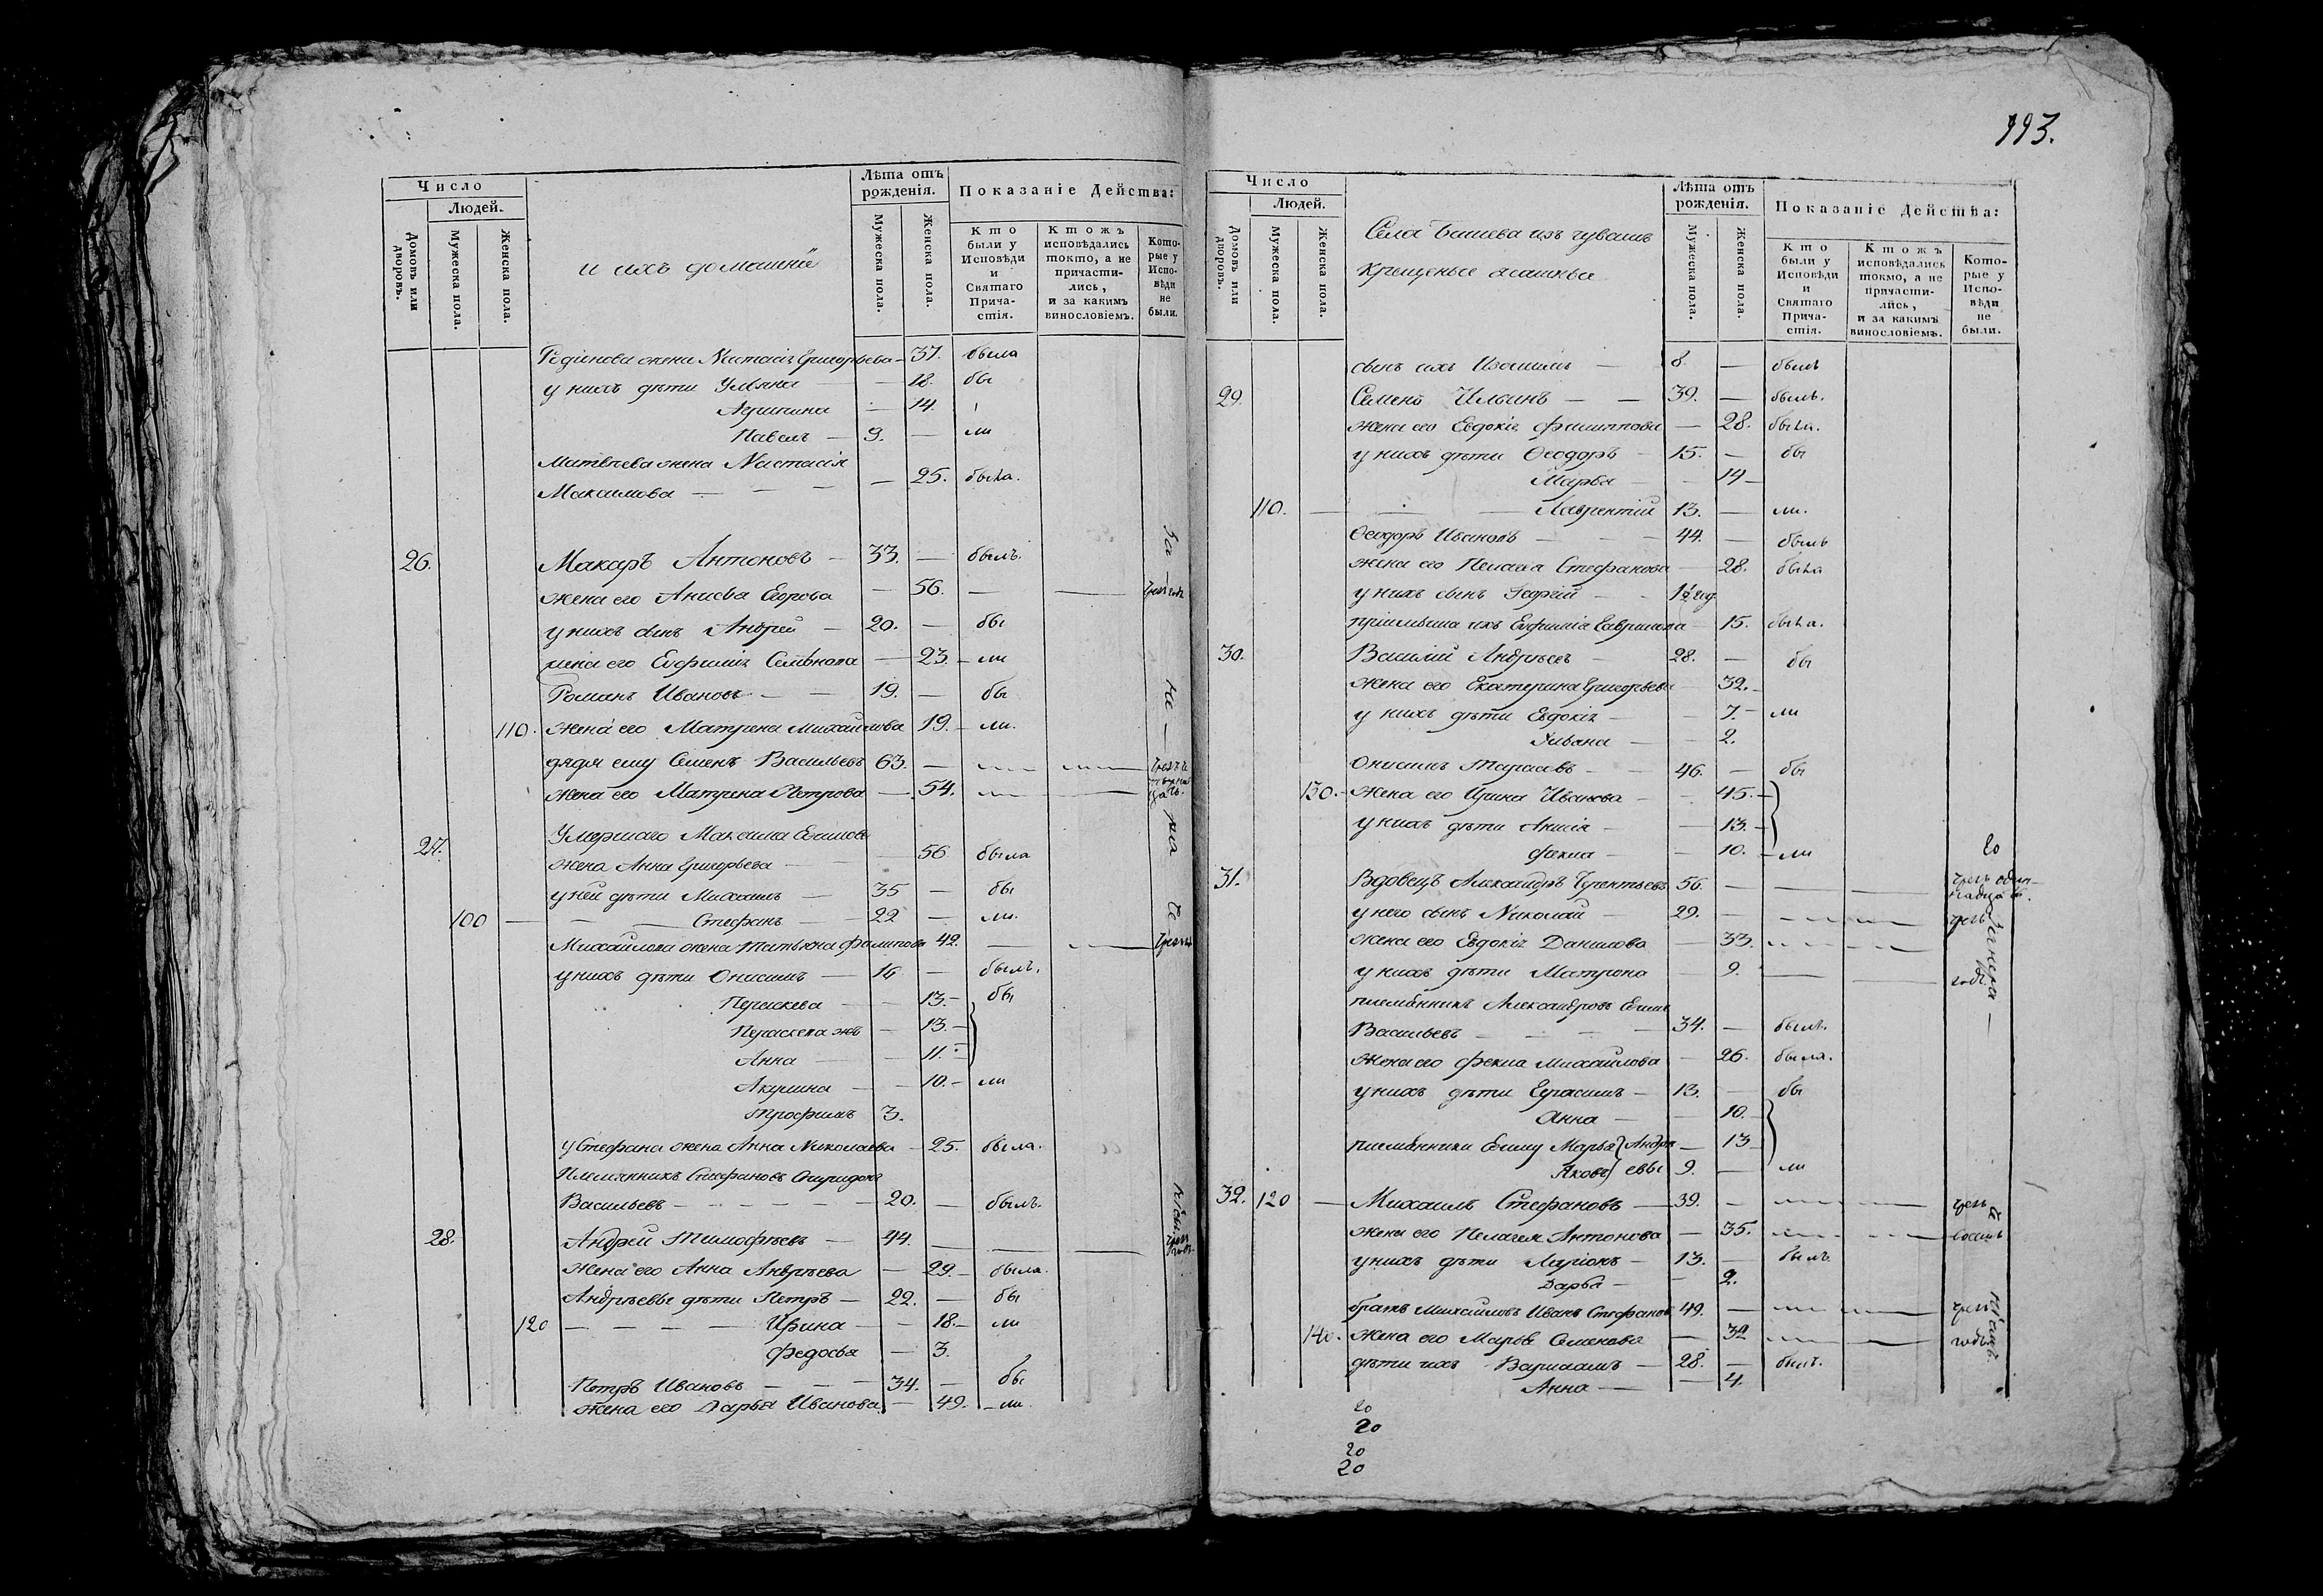 113.
Число
Людей.
Домовъ или дворовъ.
Мужеска пола.
Женска пола.
и ихъ домашнiе
Лѣта отъ рожденiя.
Мужеска пола.
Женска пола.
Показанiе Действа:
Кто были у Исповѣди и Святаго Причастiя.
Ктожъ исповѣдались токмо, а не причастились, и за какимъ винословiемъ.
Которые у Исповѣди не были.
Родiонова жена Настасiя Григорьева — 37. была
у нихъ дѣти Ульяна — 18. бы
14.
Павелъ — 9. — ли
Матвѣева жена Настасiя
Максимова — — — 25. была.
26. Макаръ Антоновъ — 33. — былъ.
жена его Егорова — 56. —
у нихъ сынъ Андрей — 20. — бы
жена его Евфимiя Семенова — 23. — ли
Романъ Ивановъ — — 19. — бы
110. жена его Матрена Михайлова 19. — ли.
дядя ему Семенъ Васильевъ 63. —
жена его Матрена Петрова — 54. —
27. Умершаго Максима
жена Анна Григорьева — 56 была
у ней дѣти Михаилъ — 35 — бы
100 — — Стефанъ — 22 — ли.
Михайлова жена Татьяна Филипова 42. —
у нихъ дѣти Онисимъ — 16 — былъ.
Параскева — 13. — бы
Параскева жъ — 13. —
Анна — 11. —
Акулина — 10. — ли
Трофимъ 3.
у Стефана жена Анна Николаева — 25. была.
Племянникъ Стефановъ Спиридонъ
Васильевъ — — — 20. — былъ.
28. Андрей Тимофѣевъ — 44. —
жена его Анна Андреева — 29. — была.
Андреевы дѣти Петръ — 22. — бы
120 — — — Ирина — 18. — ли
Федосья — 3.
Петръ Ивановъ — — 34. — бы
жена его Дарья Иванова — 49. — ли.
Число
Людей.
Домовъ или дворовъ.
Мужеска пола.
Женска пола.
Села изъ чувашъ
крещеные
Лѣта отъ рожденiя.
Мужеска пола.
Женска пола.
Показанiе Действа:
Кто были у Исповѣди и Святаго Причастiя.
Ктожъ исповѣдались токмо, а не причастились, и за какимъ винословiемъ.
Которые у Исповѣди не были.
сынъ ихъ — 8. — былъ
29. Семенъ Ильинъ — — 39. — былъ.
жена его Евдокiя Филиппова — 28. была.
у нихъ дѣти Ѳеодоръ — 15. — бы
Марѳа — 14 —
110. — — Лаврентiй 13. — ли.
Ѳеодоръ Ивановъ — — 44. — былъ
жена его Пелагея Стефанова — 28. была
у нихъ сынъ Георгiй —
ихъ Евфимiя — 15. была.
30. Василiй Андреевъ — 28. — бы
жена его Екатерина Григорьева 32. —
у нихъ дѣти Евдокiя — — 7. — ли
— 2.
Онисимъ Тарасовъ — 46. — бы
130. жена его Ирина Иванова — 45. —
у нихъ дѣти Анисiя — 13. —
Фекла — 10. — ли
20
31. Вдовецъ Александръ Терентьевъ 56. — — — чрезъ один-
надцать.
у него сынъ Николай — 29. — — — чрезъ
жена его Евдокiя Данилова — 33. — —
у нихъ дѣти Матрона — 9. — — годъ
племянникъ Александровъ
Васильевъ — — — 34. — былъ.
жена его Фекла Михайлова — 26. была.
у нихъ дѣти Герасимъ — 13. — бы
Анна — 10. —
племянники Марья Андре — 13
Яковъ евы 9. — ли
32. 120 — Михаилъ Стефановъ — 39. — — — чрезъ
жена его Пелагея Антонова — 35. — —
у нихъ дѣти Ларiонъ — 13. — былъ.
Дарья — 2.
братъ Михайловъ Иванъ Стефановъ 49. — — — чрезъ
140. жена его Марья Семенова — 32 — —
дѣти ихъ Варлаамъ — 28. — былъ.
Анна — — 4.
20
20
20
20